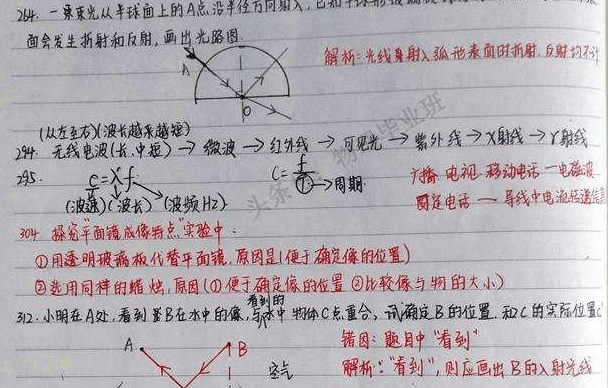 264. 一束束光从半球面上的A点沿半径方向射入,
面会发生折射和反射,画出光路图.
解析:光线射入弧形表面时折射.反射均不计
A
O
(从左至右)(波长越来越短)
294. 无线电波(长.中.短) → 微波 → 红外线 → 可见光 → 紫外线 → X射线 → γ射线
295. c=λf
(波速)(波长)(波频Hz)
→周期
广播 电视 移动电话一电磁波
固定电话 — 导线中电流传递信息
304 探究"平面镜成像特点"实验中:
①用透明玻璃板代替平面镜,原因是(便于确定像的位置)
②选用同样的蜡烛,原因(①便于确定像的位置 ②比较像与物的大小)
看到的
312.小明在A处,看到鱼B在水中的像,与水中物体C点重合,试确定B的位置.和C的实际位置C'
错因:题目中"看到"
A
B
空气
解析:"看到",则应画出B的入射光线